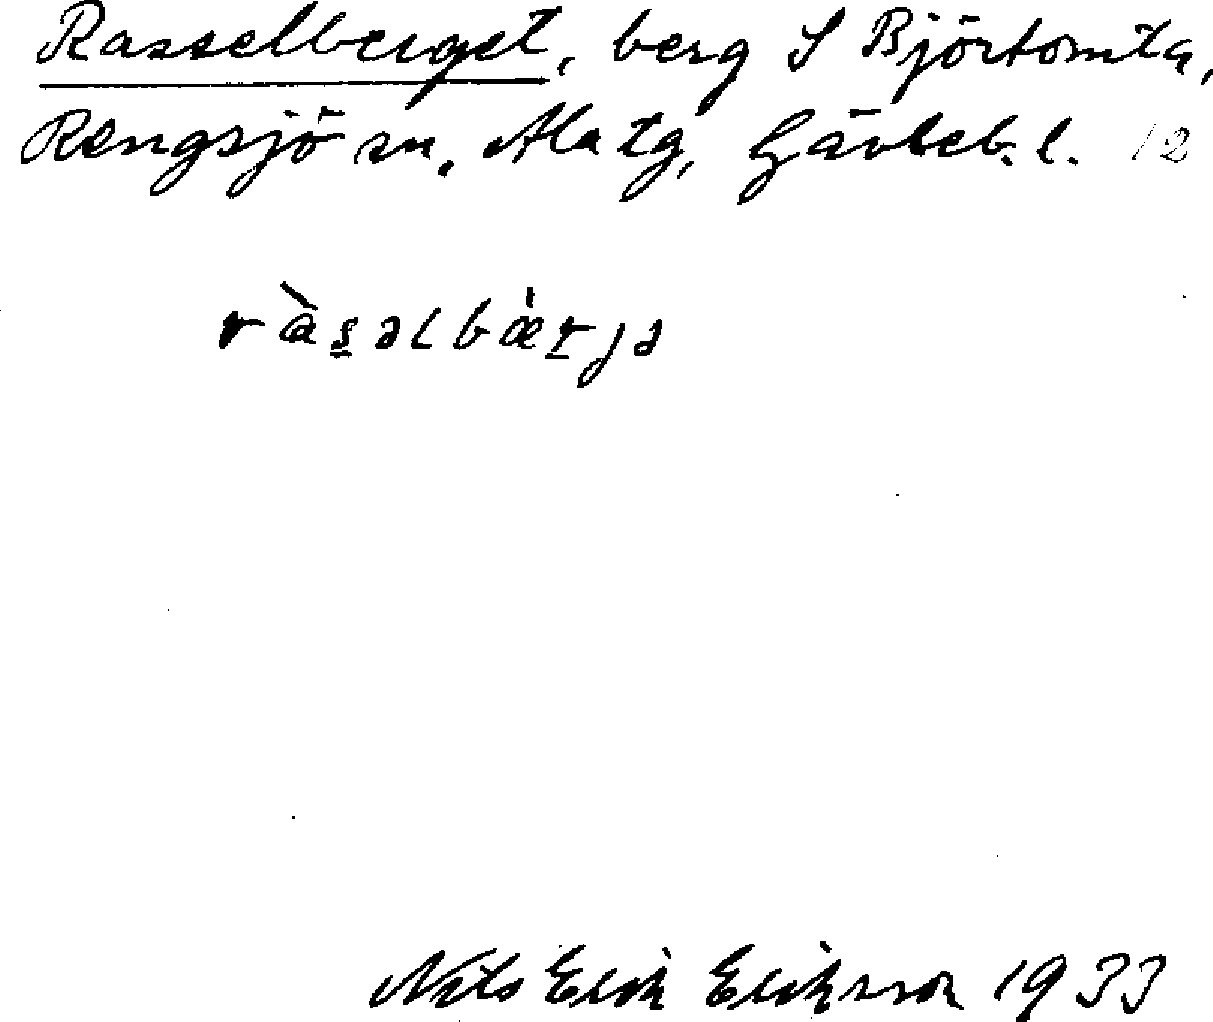 Rasselberget, berg S Björtomta,
Rengsjö sn, Ala tg, Gävleb. l. 12
ràs̲əlbæ̀r̲jə
Nils Erik Eriksson 1933